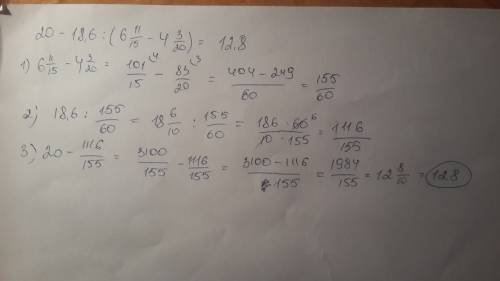 20 - 18,6 : (6 11/15 - 4 3/20) = 12,8
1) 6 11/15 - 4 3/20 = 101/15 ⁴ - 83/20 ³ = (404 - 249)/60 = 155/60
2) 18,6 : 155/60 = 18 6/10 : 155/60 = (186 · 60 ⁶)/(10 · 155) = 1116/155
3) 20 - 1116/155 = 3100/155 - 1116/155 = (3100 - 1116)/155 = 1984/155 = 12 8/10 = 12,8